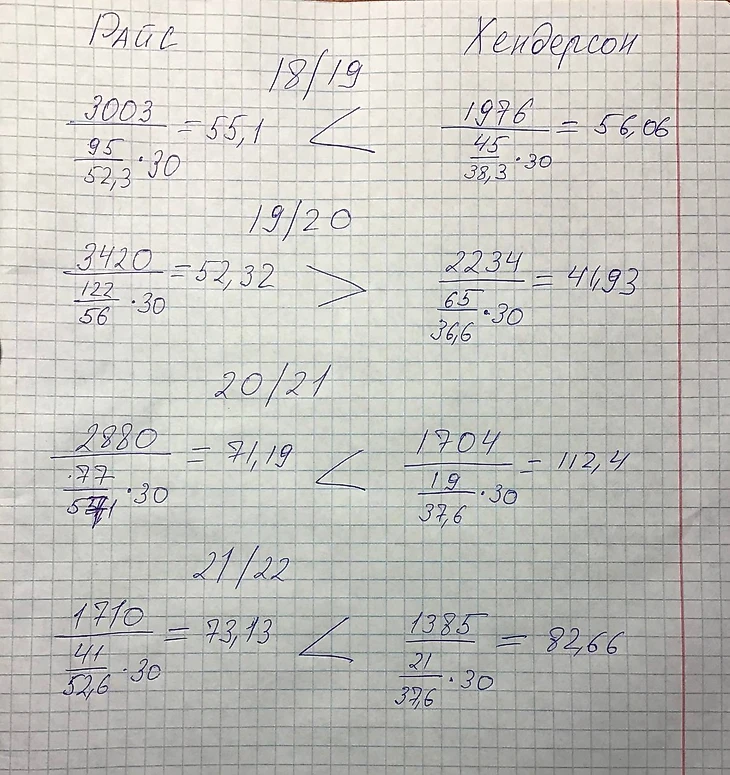 Райс Хендерсон
18/19
3003 / (95/52,3 · 30) = 55,1 < 1976 / (45/38,3 · 30) = 56,06
19/20
3420 / (122/56 · 30) = 52,32 > 2234 / (65/36,6 · 30) = 41,93
20/21
2880 / (77/57,1 · 30) = 71,19 < 1704 / (19/37,6 · 30) = 112,4
21/22
1710 / (41/52,6 · 30) = 73,13 < 1385 / (21/37,6 · 30) = 82,66